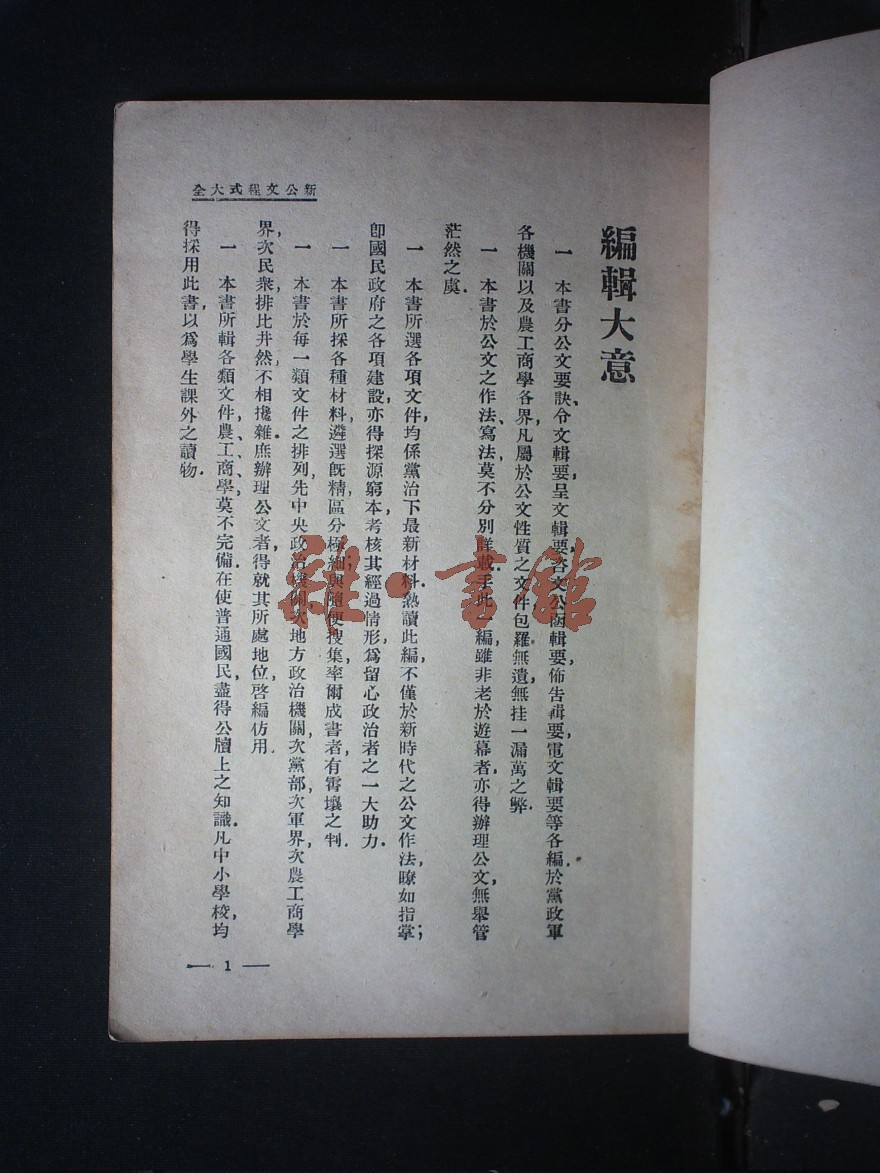 編輯大意
一　本書分公文要訣、令文輯要、呈文輯要、咨文公函輯要、佈告輯要、電文輯要等各編．於黨政軍
各機關以及農工商學各界，凡屬於公文性質之文件包羅無遺，無挂一漏萬之弊．
一　本書於公文之作法、寫法，莫不分別詳載，手此一編，雖非老於遊幕者，亦得辦理公文，無舉管
茫然之虞．
一　本書所選各項文件，均係黨治下最新材料．熟讀此編，不僅於新時代之公文作法，瞭如指掌；
卽國民政府之各項建設，亦得探源窮本，考核其經過情形，爲留心政治者之一大助力．
一　本書所採各種材料，遴選旣精，區分極細，與隨便搜集，率爾成書者，有霄壤之判．
一　本書於每一類文件之排列，先中央政治機關，次地方政治機關，次黨部，次軍界，次農工商學
界，次民衆，排比井然，不相攙雜．庶辦理公文者，得就其所處地位，啓編仿用．
一　本書所輯各類文件，農、工、商、學，莫不完備．在使普通國民，盡得公牘上之知識．凡中小學校，均
得採用此書，以爲學生課外之讀物．
新公文程式大全
— 1 —
雜·書館